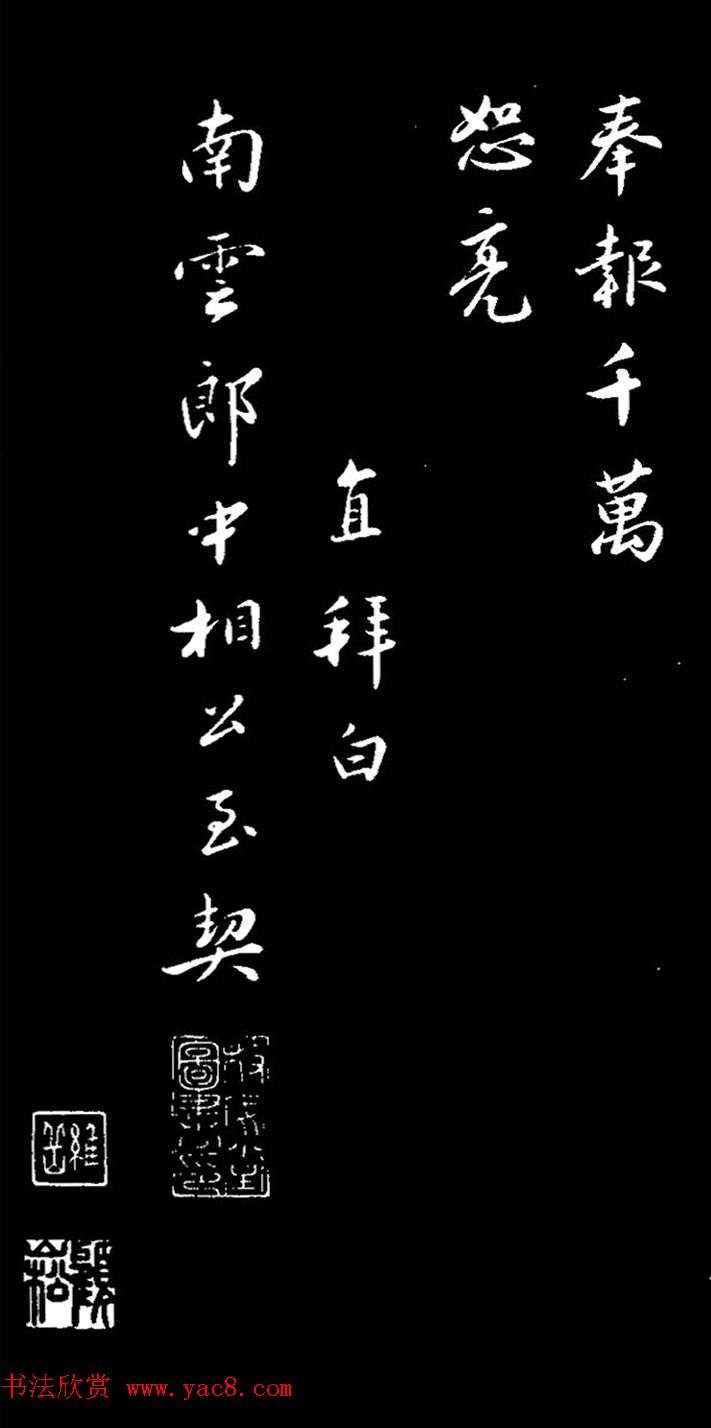 奉報千萬
恕亮
直拜白
南雲郎中相公至契
維岳
书法欣赏 www.yac8.com